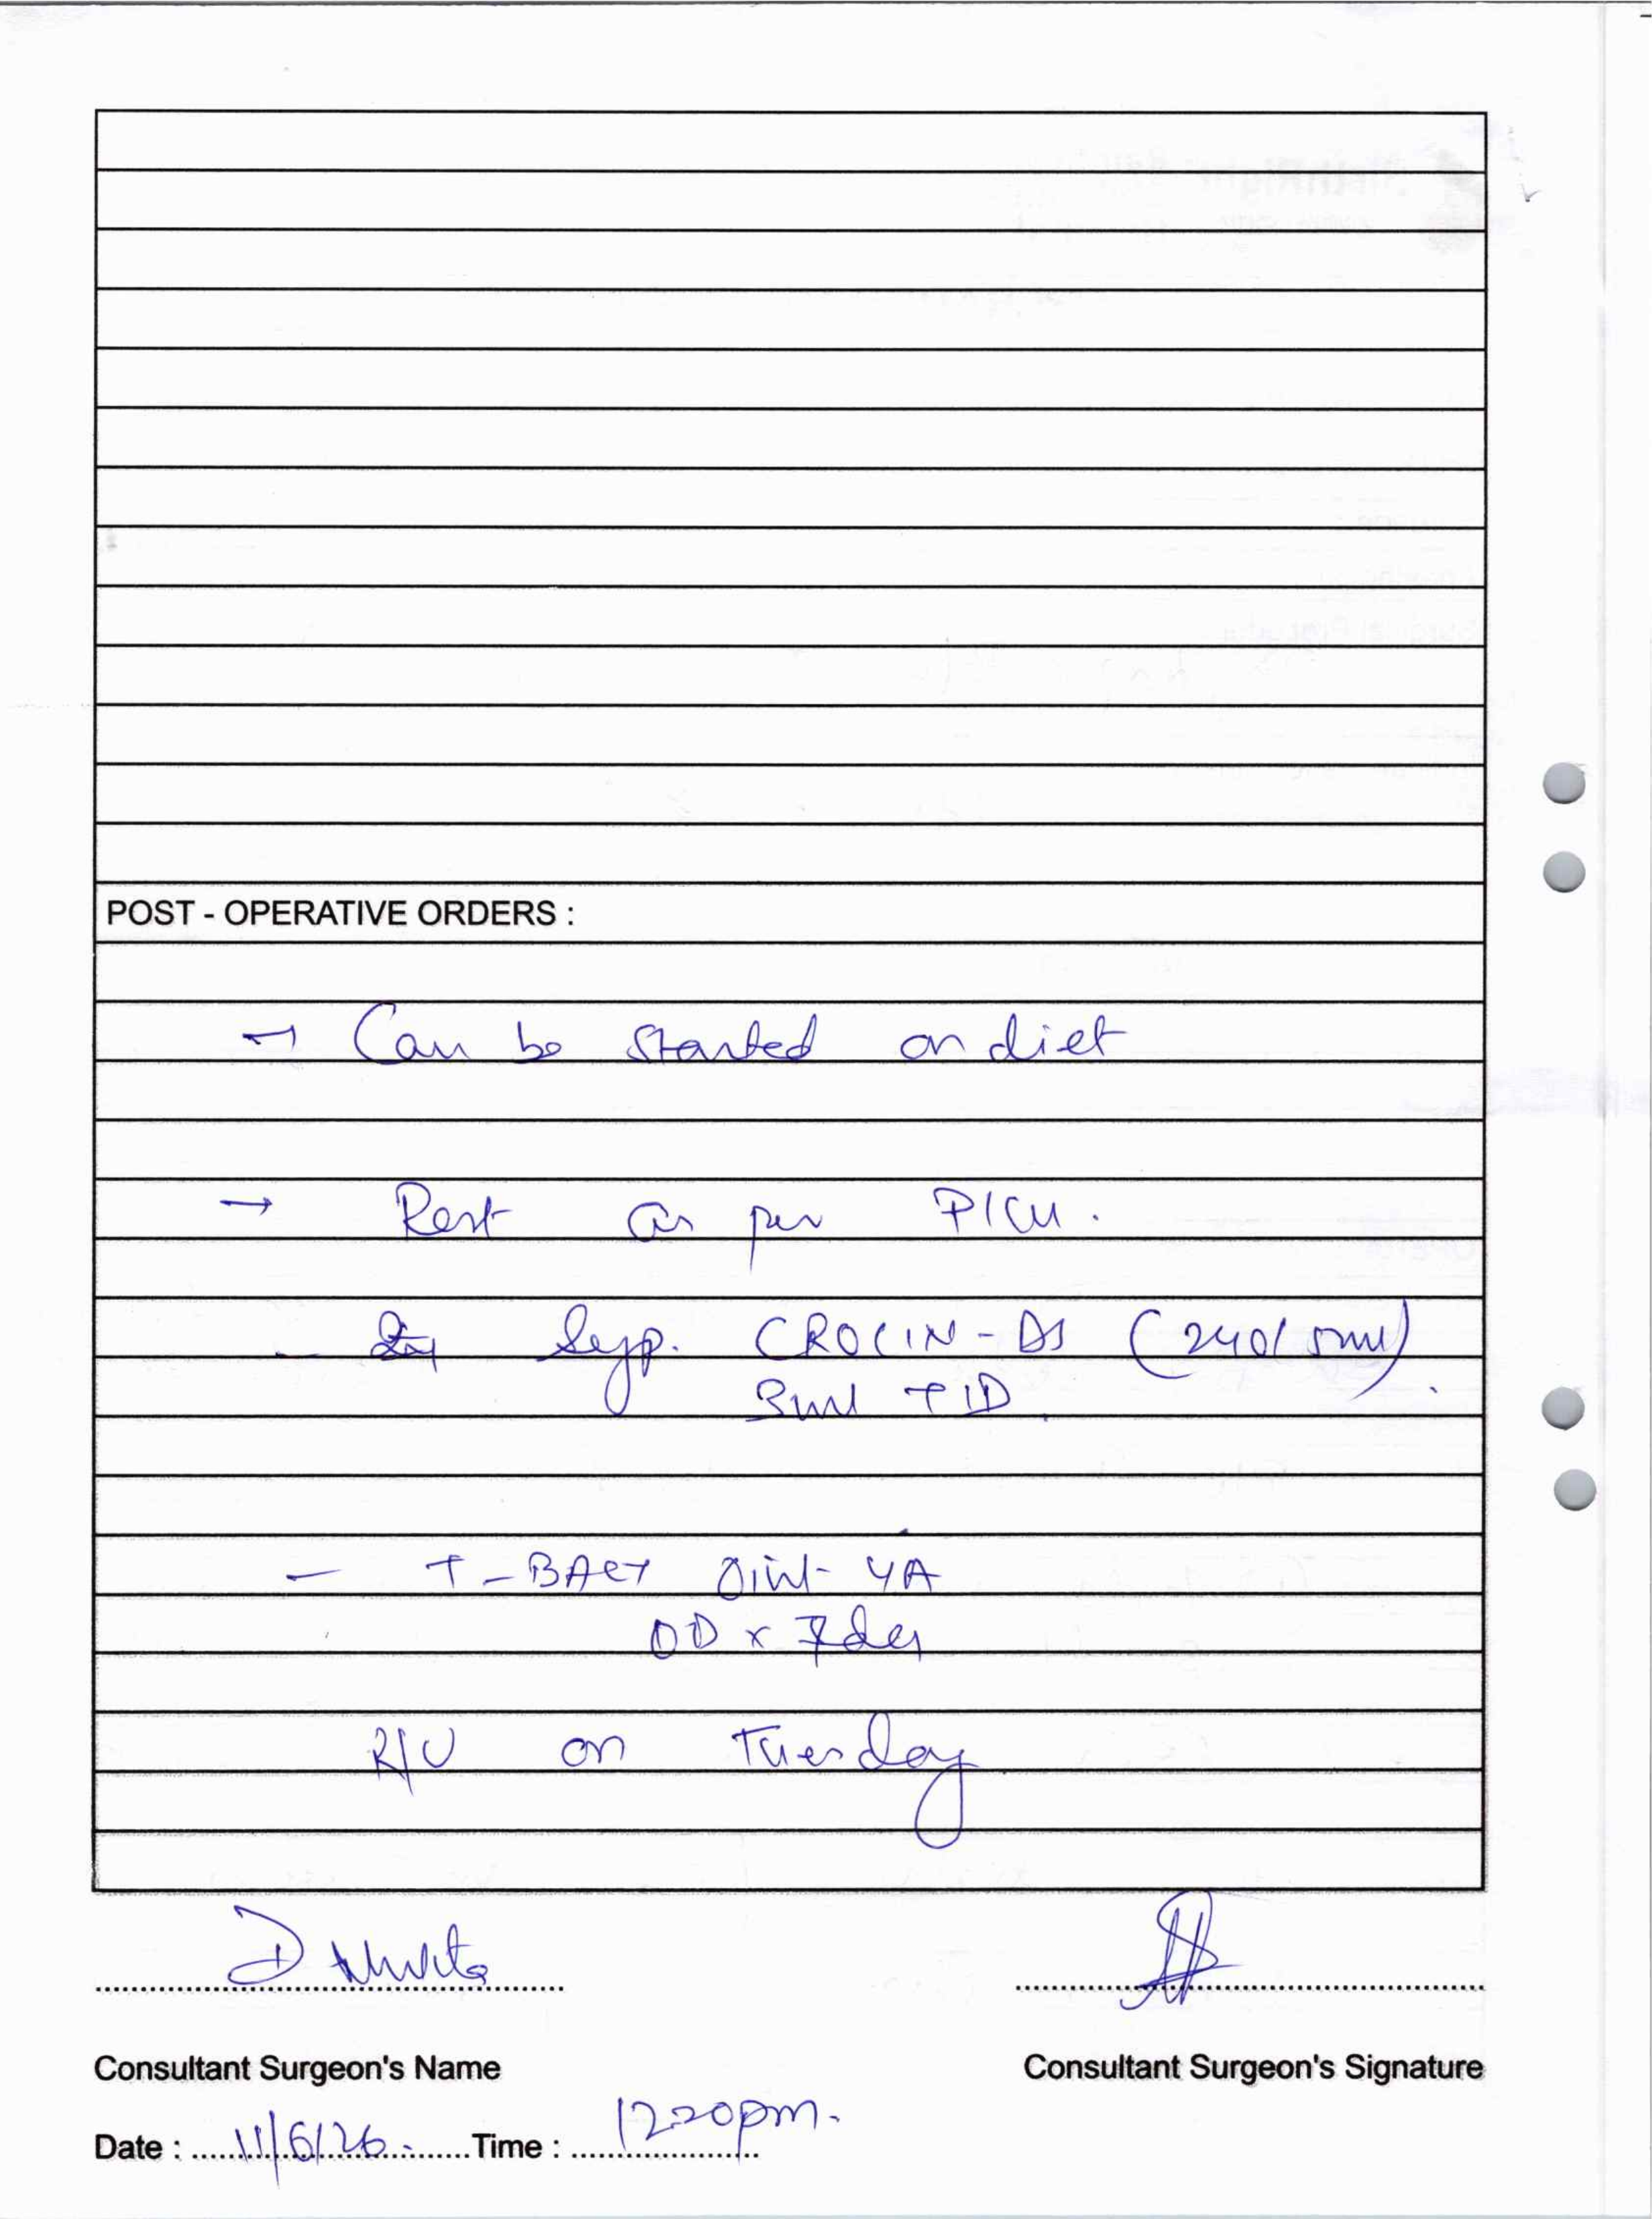 POST - OPERATIVE ORDERS :
→ Can be started on diet
→ Rest as per PICU.
- Syp. CROCIN-DS (240/5ml).
TID.
- T-BACT Oint LA
OD x 7 day
R/U on Tuesday
Consultant Surgeon's Name
Consultant Surgeon's Signature
Date : 11/6/26. Time : 1220pm.